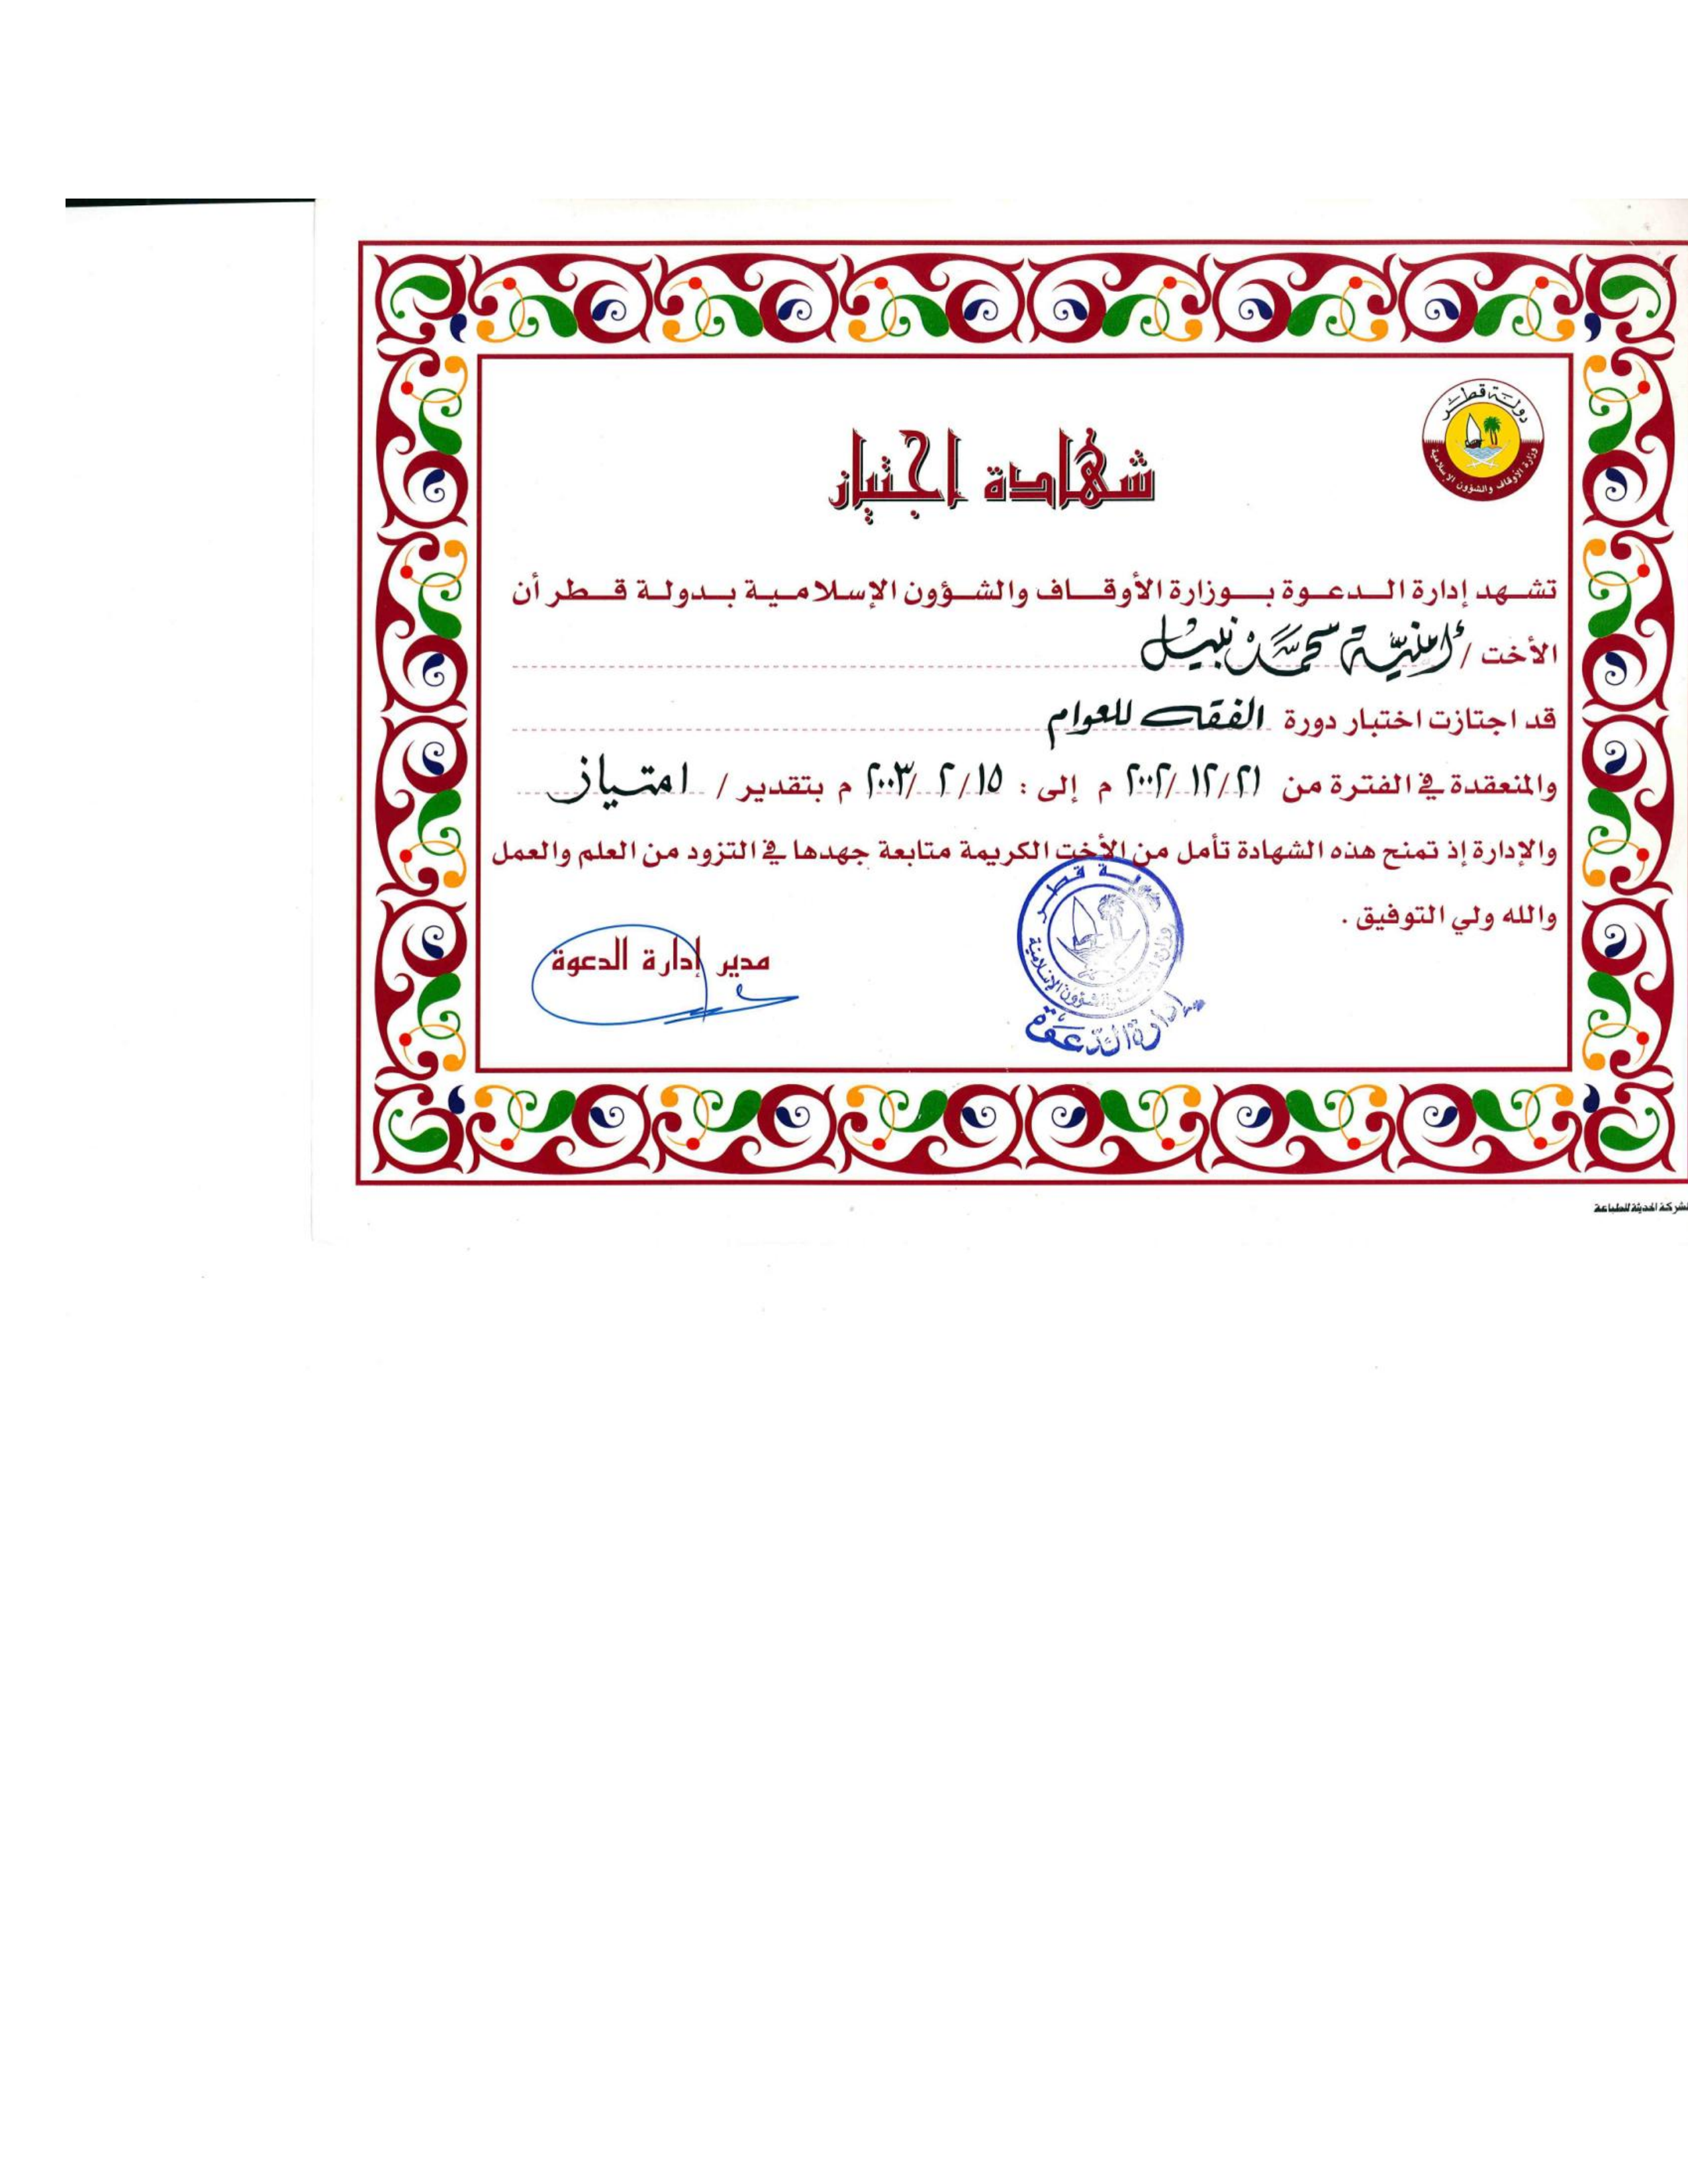 دولة قطر
وزارة الأوقاف والشؤون الإسلامية
شهادة إجتياز
تشهد إدارة الدعوة بوزارة الأوقاف والشؤون الإسلامية بدولة قطر أن
الأخت / أمنية محمد نبيل
قد اجتازت اختبار دورة الفقه للعوام
والمنعقدة في الفترة من ٢١/ ١٢/ ٢٠٠٢ م إلى : ١٥/ ٢ /٢٠٠٣ م بتقدير / امتياز
والإدارة إذ تمنح هذه الشهادة تأمل من الأخت الكريمة متابعة جهدها في التزود من العلم والعمل
والله ولي التوفيق .
مدير إدارة الدعوة
دولة قطر
والشؤون الإسلامية
إدارة الدعوة
الحديثة للطباعة